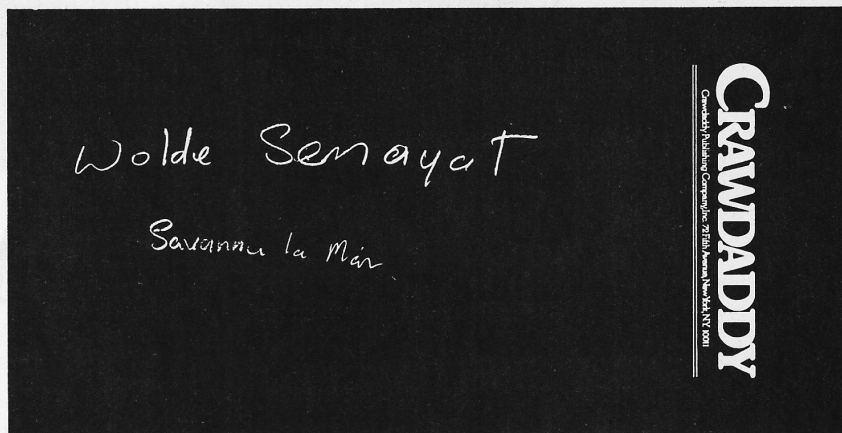 Wolde Semayat
Savanna la Mar
CRAWDADDY
Crawdaddy Publishing Company, Inc. 72 Fifth Avenue, New York, N.Y. 10011